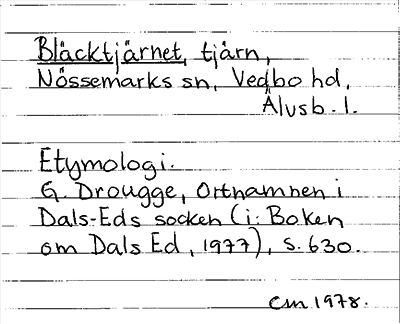 Bläcktjärnet, tjärn,
Nössemarks sn, Vedbo hd,
Älvsb. l.
Etymologi.
G. Drougge, Ortnamnen i
Dals-Eds socken (i: Boken
om Dals Ed, 1977), s. 630.
CM 1978.